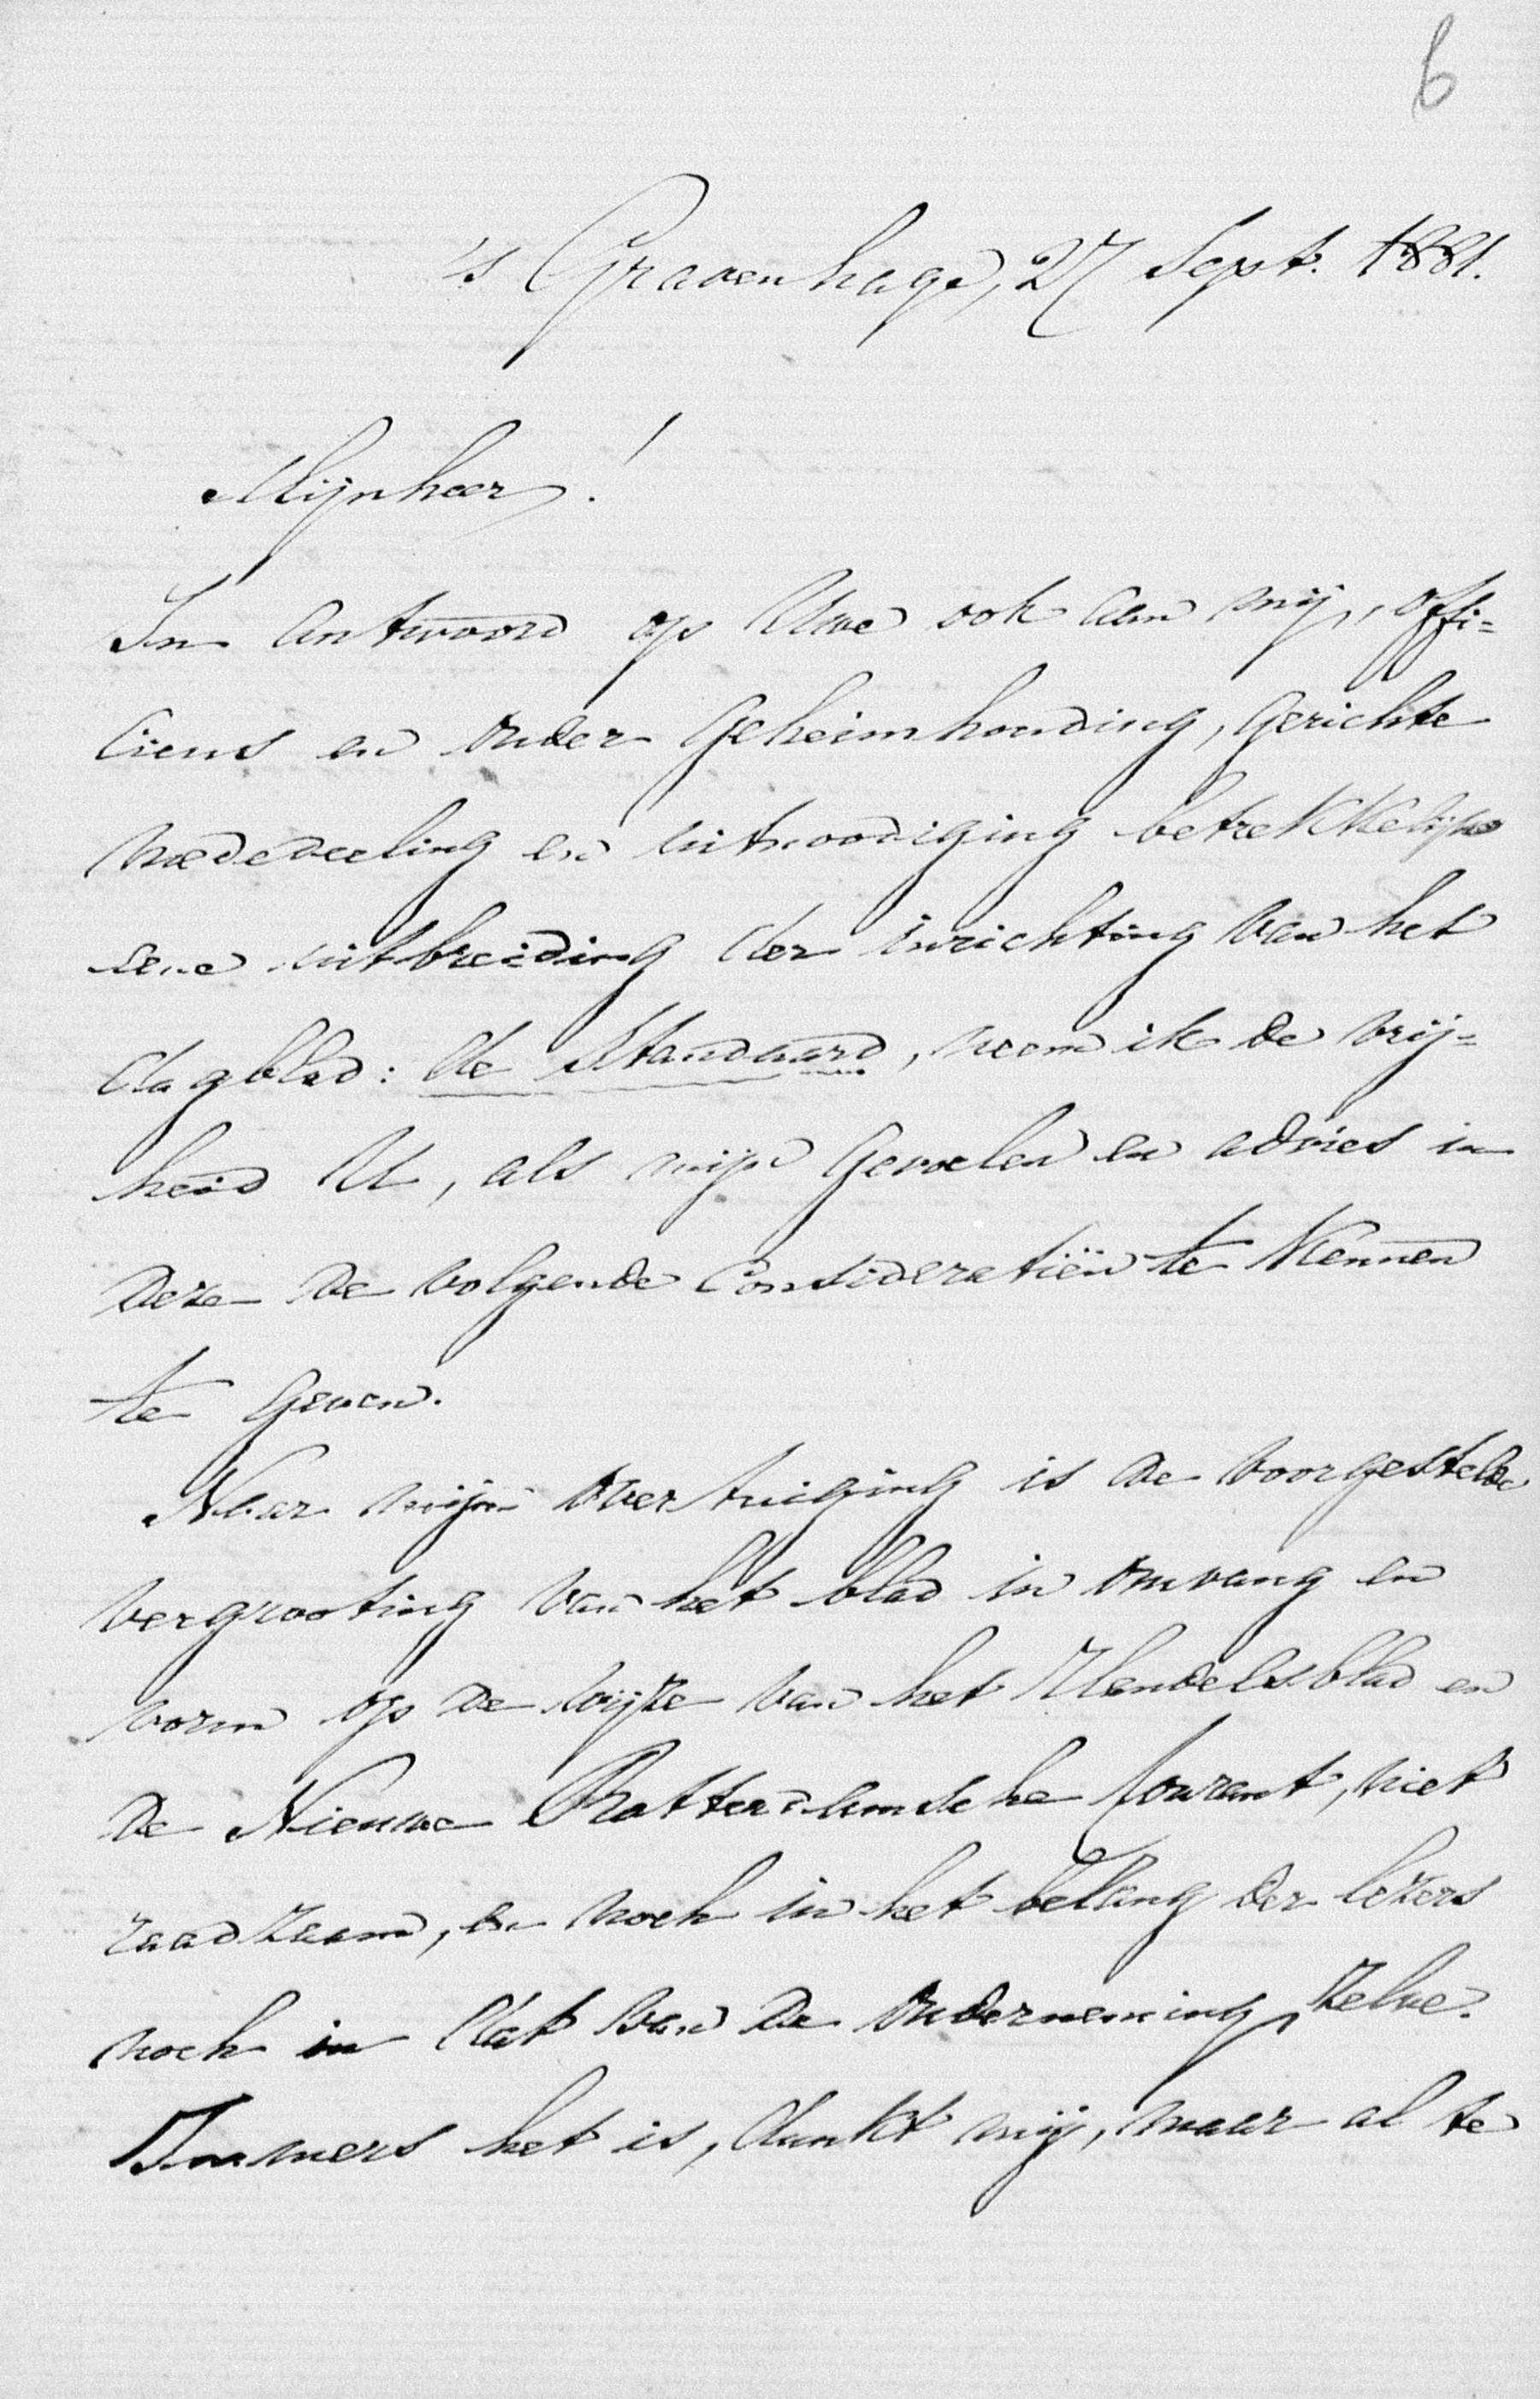 6
's Gravenhage, 27 Sept. 1881.
Mijnheer!
In antwoord op Uwe ook aan mij, offi=
ciens en onder geheimhouding, gerichte
mededeeling en uitnoodiging betrekkelijk
eene uitbreiding der inrichting van het
dagblad: de Standaard, neem ik de vrij=
heid U, als mijn gevoelen en advies in
deze de volgende Consideratiën te kennen
te geven.
Naar mijne overtuiging is de voorgestelde
vergrooting van het blad in omvang en
vorm op de wijze van het Handelsblad en
de Nieuwe Rotterdamsche Courant, niet
raadzaam, en noch in het belang der lezers
noch in dat van de onderneming zelve.
Immers het is, dunkt mij, maar al te